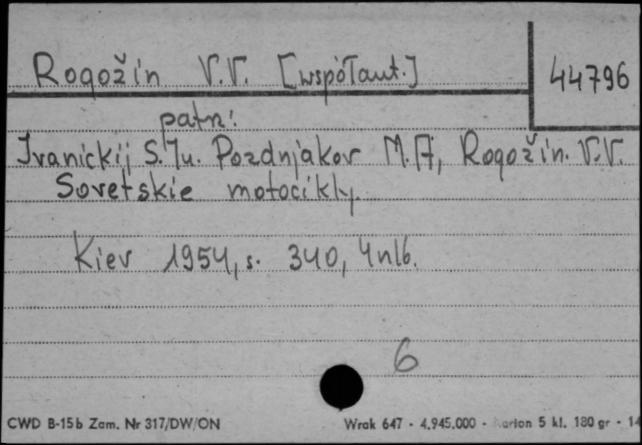 Rogožin V.V. [współaut.]
44796
patrz:
Ivanickij S. Ju. Pozdnjakov M. A, Rogožin. V.V.
Sovetskie motocikly.
Kiev 1954, s. 340, 4 nlb.
6
CWD B-15b Zam. Nr 317/DW/ON
Wrak 647 - 4.945.000 - 5 kl. 180 gr -